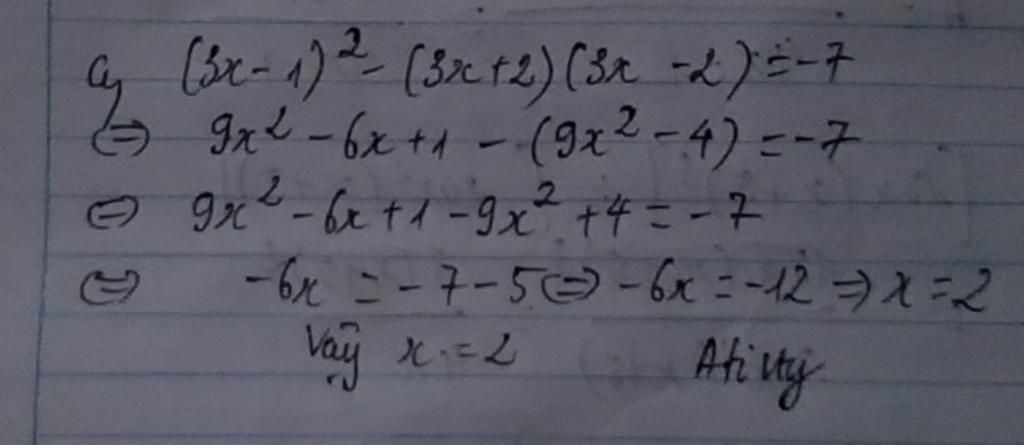 a, (3x-1)² - (3x+2)(3x-2) = -7
⇔ 9x² - 6x + 1 - (9x² - 4) = -7
⇔ 9x² - 6x + 1 - 9x² + 4 = -7
⇔ -6x = -7-5 ⇔ -6x = -12 ⇒ x = 2
Vậy x = 2